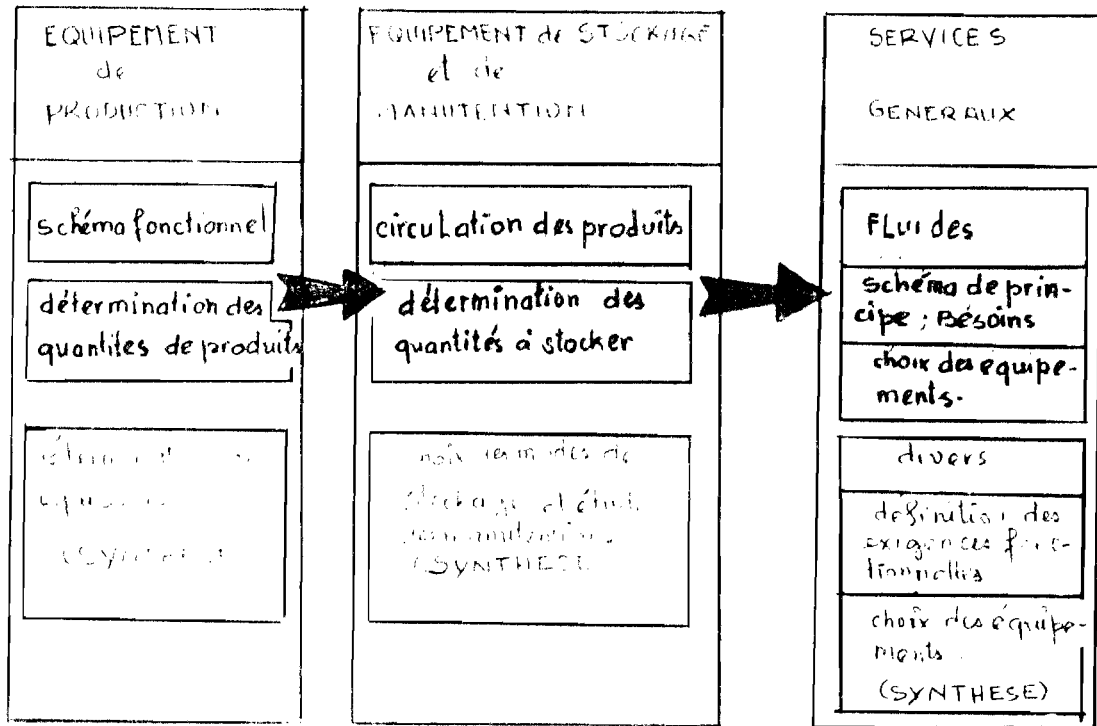 EQUIPEMENT
de
PRODUCTION
schéma fonctionnel
détermination des
quantites de produits
(SYNTHESE
EQUIPEMENT de STOCKAGE
et de
MANUTENTION
circulation des produits
détermination des
quantités à stocker
choix des modes de
stockage et étude
(SYNTHESE
SERVICES
GENERAUX
FLuides
schéma de prin-
cipe ; Bésoins
choix des équipe-
ments.
divers
définition des
exigences fonc-
tionnelles
choix des équipe-
ments.
(SYNTHESE)